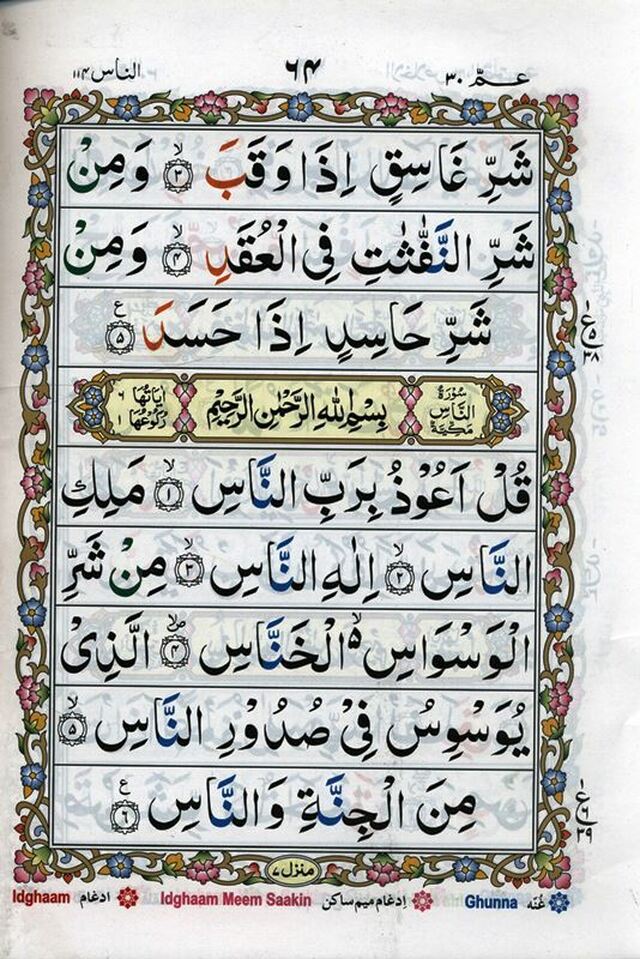 عـمّ ٣٠
٦٤
الناس ١١٤
شَرِّ غَاسِقٍ اِذَا وَقَبَ ۙ‏﴿۳﴾ وَمِنْ
شَرِّ النَّفّٰثٰتِ فِی الْعُقَدِ ۙ‏﴿۴﴾ وَمِنْ
شَرِّ حَاسِدٍ اِذَا حَسَدَ ﴿۵﴾ ع
ع ۱ ۵ ۳۸
سُوْرَةُ النَّاسِ مَكِّيَّةٌ
بِسْمِ اللهِ الرَّحْمٰنِ الرَّحِيْمِ
اٰيَاتُهَا ٦ رُكُوْعُهَا ١
قُلْ اَعُوْذُ بِرَبِّ النَّاسِ ۙ‏﴿۱﴾ مَلِكِ
النَّاسِ ۙ‏﴿۲﴾ اِلٰهِ النَّاسِ ۙ‏﴿۳﴾ مِنْ شَرِّ
الْوَسْوَاسِ ۙ۬ الْخَنَّاسِ ۪ۙ‏﴿۴﴾ الَّذِیْ
يُوَسْوِسُ فِیْ صُدُوْرِ النَّاسِ ۙ‏﴿۵﴾
مِنَ الْجِنَّةِ وَالنَّاسِ ﴿۶﴾ ع
ع ۱ ۶ ۳۹
منزل ٧
Ghunna غُنّه
Idghaam Meem Saakin إدغام ميم ساكن
Idghaam ادغام